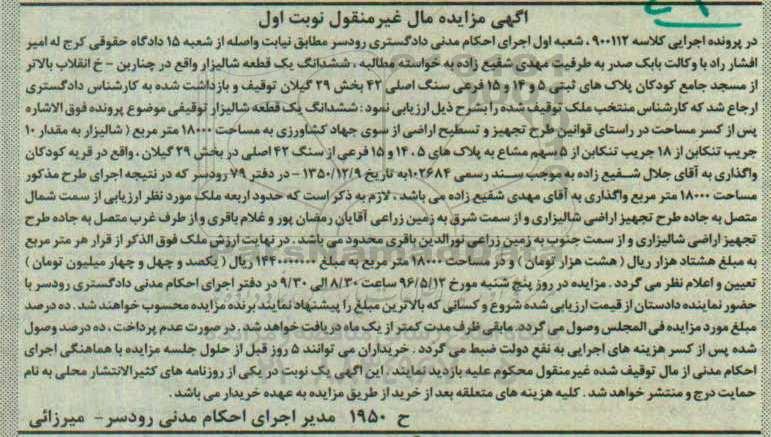 آگهی مزایده مال غیرمنقول نوبت اول
در پرونده اجرایی کلاسه ۹۰۰۱۱۲ ، شعبه اول اجرای احکام مدنی دادگستری رودسر مطابق نیابت واصله از شعبه ۱۵ دادگاه حقوقی کرج له امیر
افشار راد با وکالت بابک صدر به طرفیت مهدی شفیع زاده به خواسته مطالبه ، ششدانگ یک قطعه شالیزار واقع در چنارین - خ انقلاب بالاتر
از مسجد جامع کودکان پلاک های ثبتی ۵ و ۱۴ و ۱۵ فرعی سنگ اصلی ۴۲ بخش ۲۹ گیلان توقیف و بازداشت شده به کارشناس دادگستری
ارجاع شد که کارشناس منتخب ملک توقیف شده را بشرح ذیل ارزیابی نمود : ششدانگ یک قطعه شالیزار توقیفی موضوع پرونده فوق الاشاره
پس از کسر مساحت در راستای قوانین طرح تجهیز و تسطیح اراضی از سوی جهاد کشاورزی به مساحت ۱۸۰۰۰ متر مربع ( شالیزار به مقدار ۱۰
جریب تنکابن از ۱۸ جریب تنکابن از ۵ سهم مشاع به پلاک های ۵ ، ۱۴ و ۱۵ فرعی از سنگ ۴۲ اصلی در بخش ۲۹ گیلان ، واقع در قریه کودکان
واگذاری به آقای جلال شفیع زاده به موجب سند رسمی ۱۰۲۶۸۴ به تاریخ ۱۳۵۰/۱۲/۹ - در دفتر ۷۹ رودسر که در نتیجه اجرای طرح مذکور
مساحت ۱۸۰۰۰ متر مربع واگذاری به آقای مهدی شفیع زاده می باشد . لازم به ذکر است که حدود اربعه ملک مورد نظر ارزیابی از سمت شمال
متصل به جاده طرح تجهیز اراضی شالیزاری و از سمت شرق به زمین زراعی آقایان رمضان پور و غلام باقری و از طرف غرب متصل به جاده طرح
تجهیز اراضی شالیزاری و از سمت جنوب به زمین زراعی نورالدین باقری محدود می باشد . در نهایت ارزش ملک فوق الذکر از قرار هر متر مربع
به مبلغ هشتاد هزار ریال ( هشت هزار تومان ) و در مساحت ۱۸۰۰۰ متر مربع به مبلغ ۱۴۴۰۰۰۰۰۰۰ ریال ( یکصد و چهل و چهار میلیون تومان )
تعیین و اعلام نظر می گردد . مزایده در روز پنج شنبه مورخ ۹۶/۵/۱۲ ساعت ۸/۳۰ الی ۹/۳۰ در دفتر اجرای احکام مدنی دادگستری رودسر با
حضور نماینده دادستان از قیمت ارزیابی شده شروع و کسانی که بالاترین مبلغ را پیشنهاد نمایند برنده مزایده محسوب خواهند شد . ده درصد
مبلغ مورد مزایده فی المجلس وصول می گردد. مابقی ظرف مدت کمتر از یک ماه دریافت خواهد شد . در صورت عدم پرداخت ، ده درصد وصول
شده پس از کسر هزینه های اجرایی به نفع دولت ضبط می گردد . خریداران می توانند ۵ روز قبل از حلول جلسه مزایده با هماهنگی اجرای
احکام مدنی از مال توقیف شده غیرمنقول محکوم علیه بازدید نمایند . این آگهی یک نوبت در یکی از روزنامه های کثیرالانتشار محلی به نام
حمایت درج و منتشر خواهد شد . کلیه هزینه های متعلقه بعد از خرید از طریق مزایده به عهده خریدار می باشد .
ح ۱۹۵۰ مدیر اجرای احکام مدنی رودسر - میرزائی